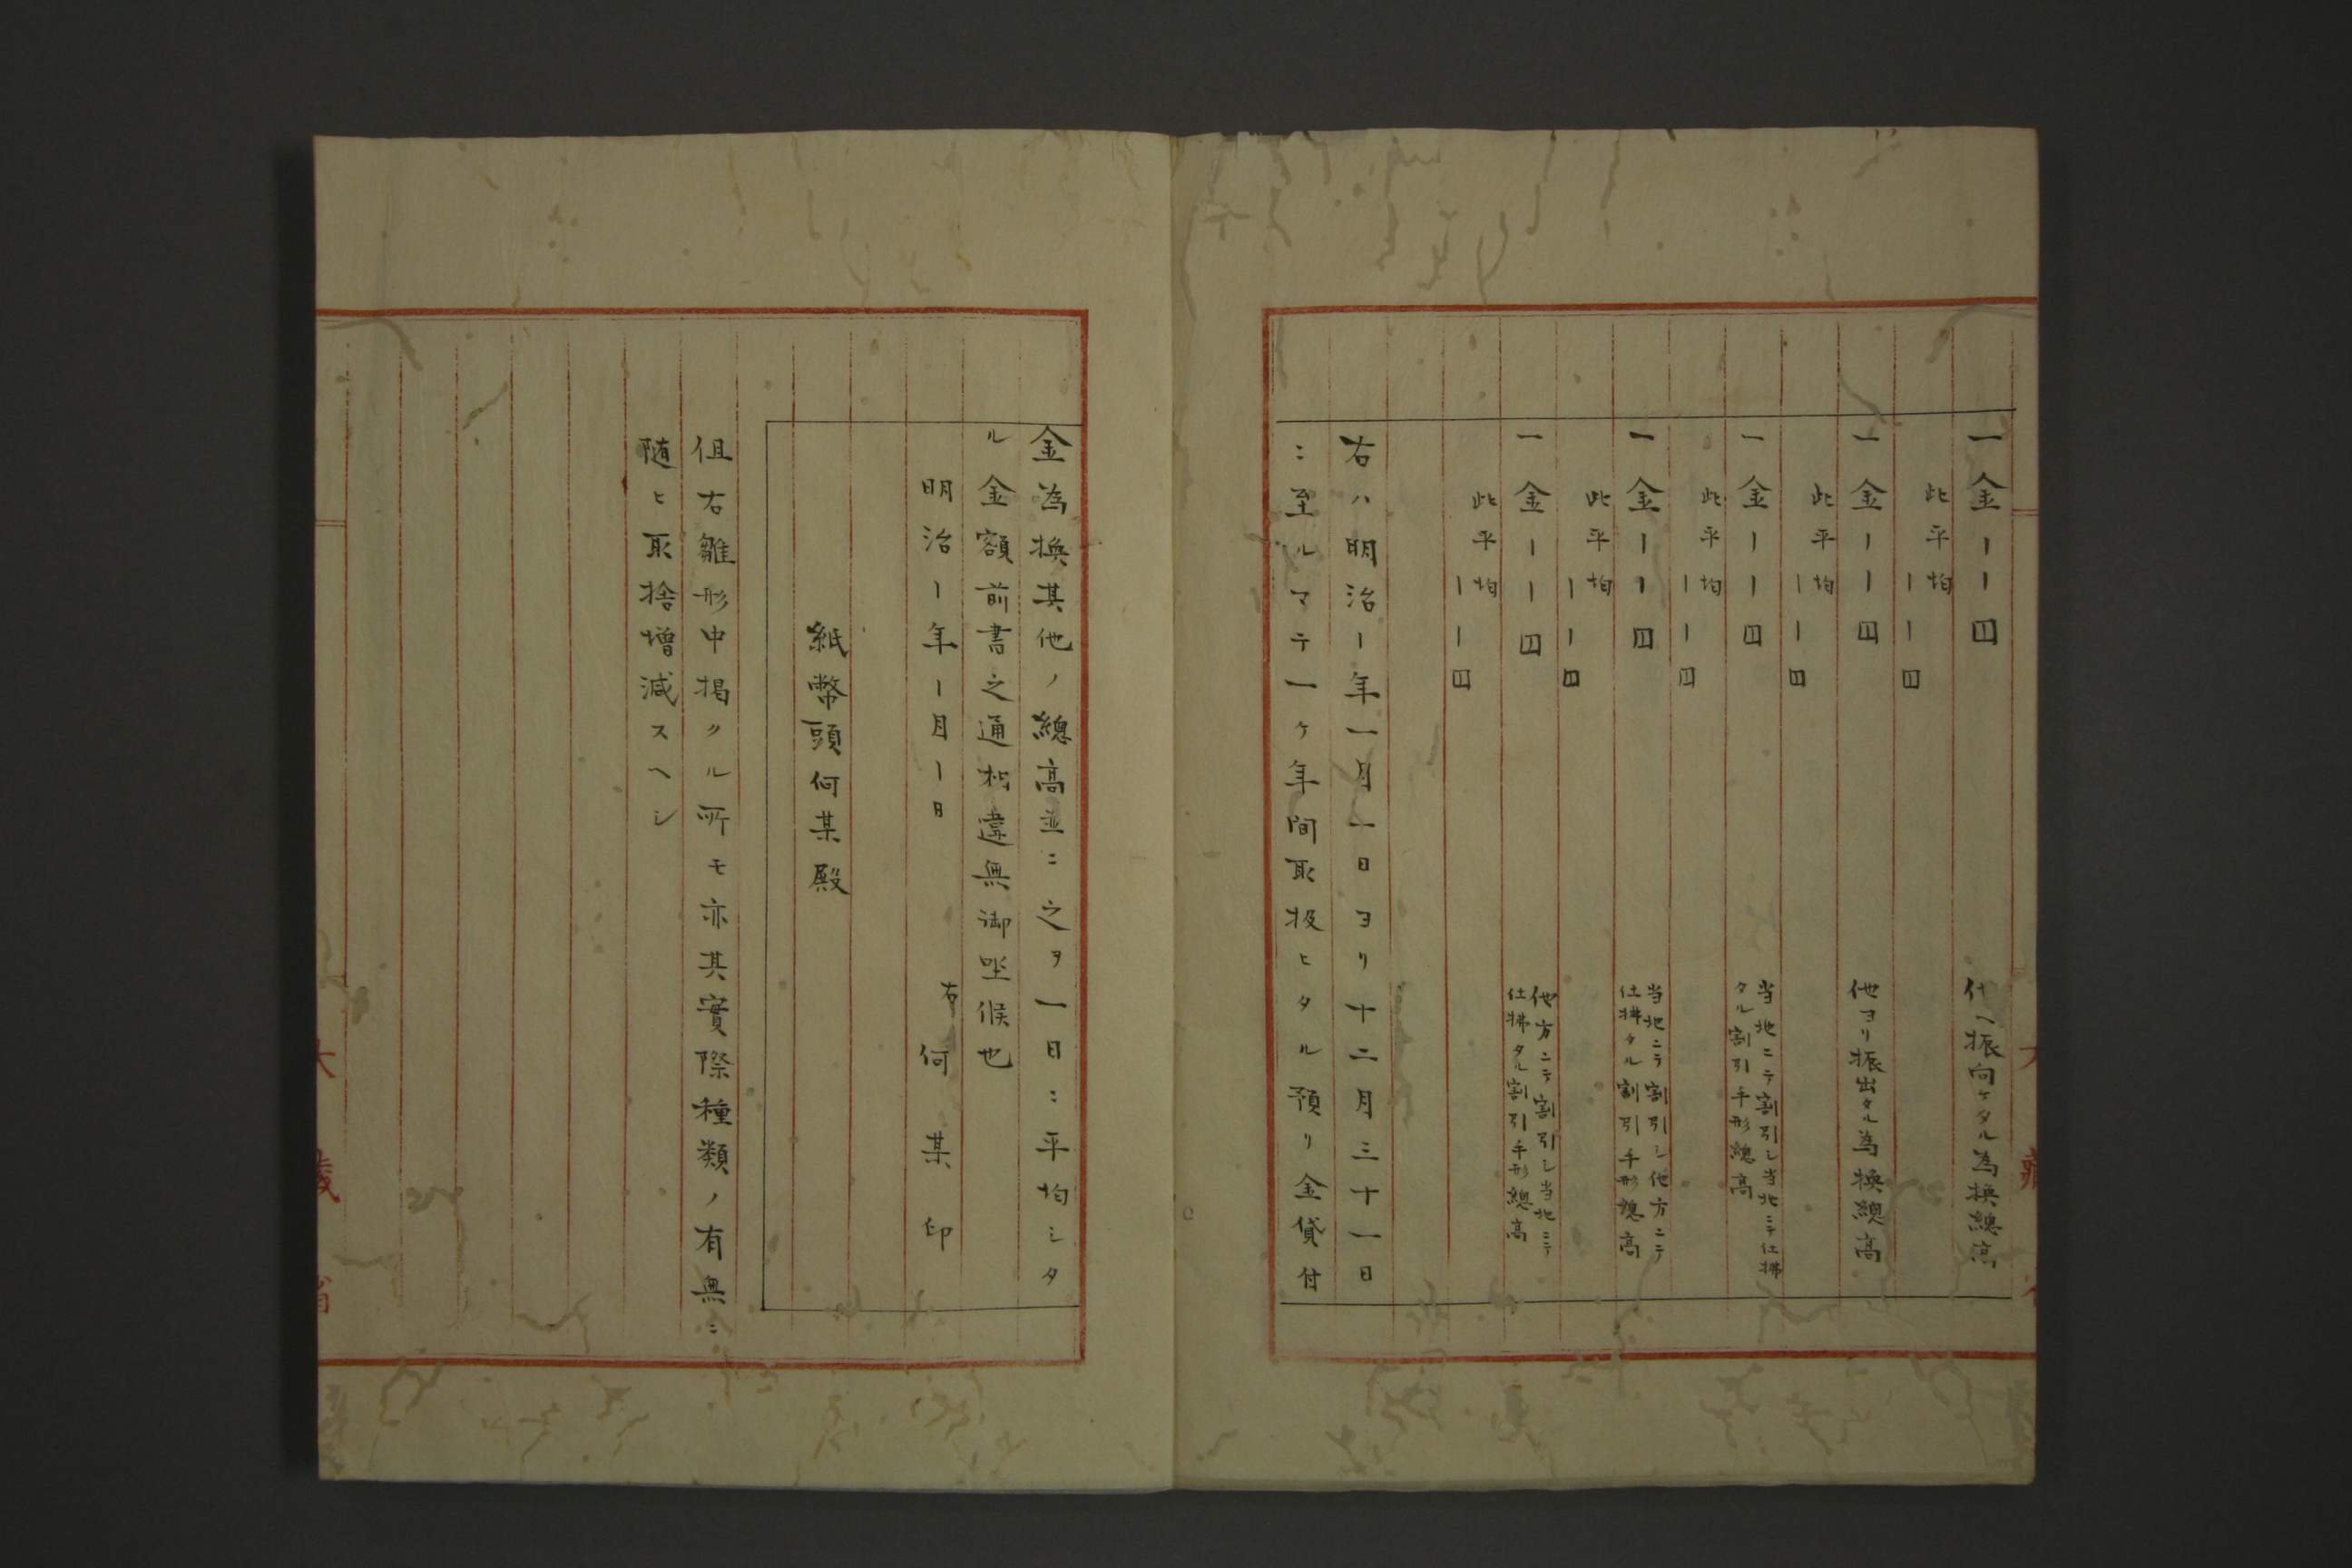 一金ーー円 他ヘ振向ケタル為換總高
此平均ーー円
一金ーー円 他ヨリ振出タル為換總高
此平均ーー円
一金ーー円 当地ニテ割引シ当地ニテ仕拂
タル割引手形總高
此平均ーー円
一金ーー円 当地ニテ割引シ他方ニテ
仕拂タル割引手形總高
此平均ーー円
一金ーー円 他方ニテ割引シ当地ニテ
仕拂タル割引手形總高
此平均ーー円
右ハ明治ー年一月一日ヨリ十二月三十一日
ニ至ルマテ一ヶ年間取扱ヒタル預リ金貸付
金為換其他ノ總高並ニ之ヲ一日ニ平均シタ
ル金額前書之通相違無御坐候也
明治ー年ー月ー日
右 何某印
紙幣頭何某殿
但右雛形中掲クル所モ亦其實際種類ノ有無ニ
随ヒ取捨増減スヘシ
大藏省